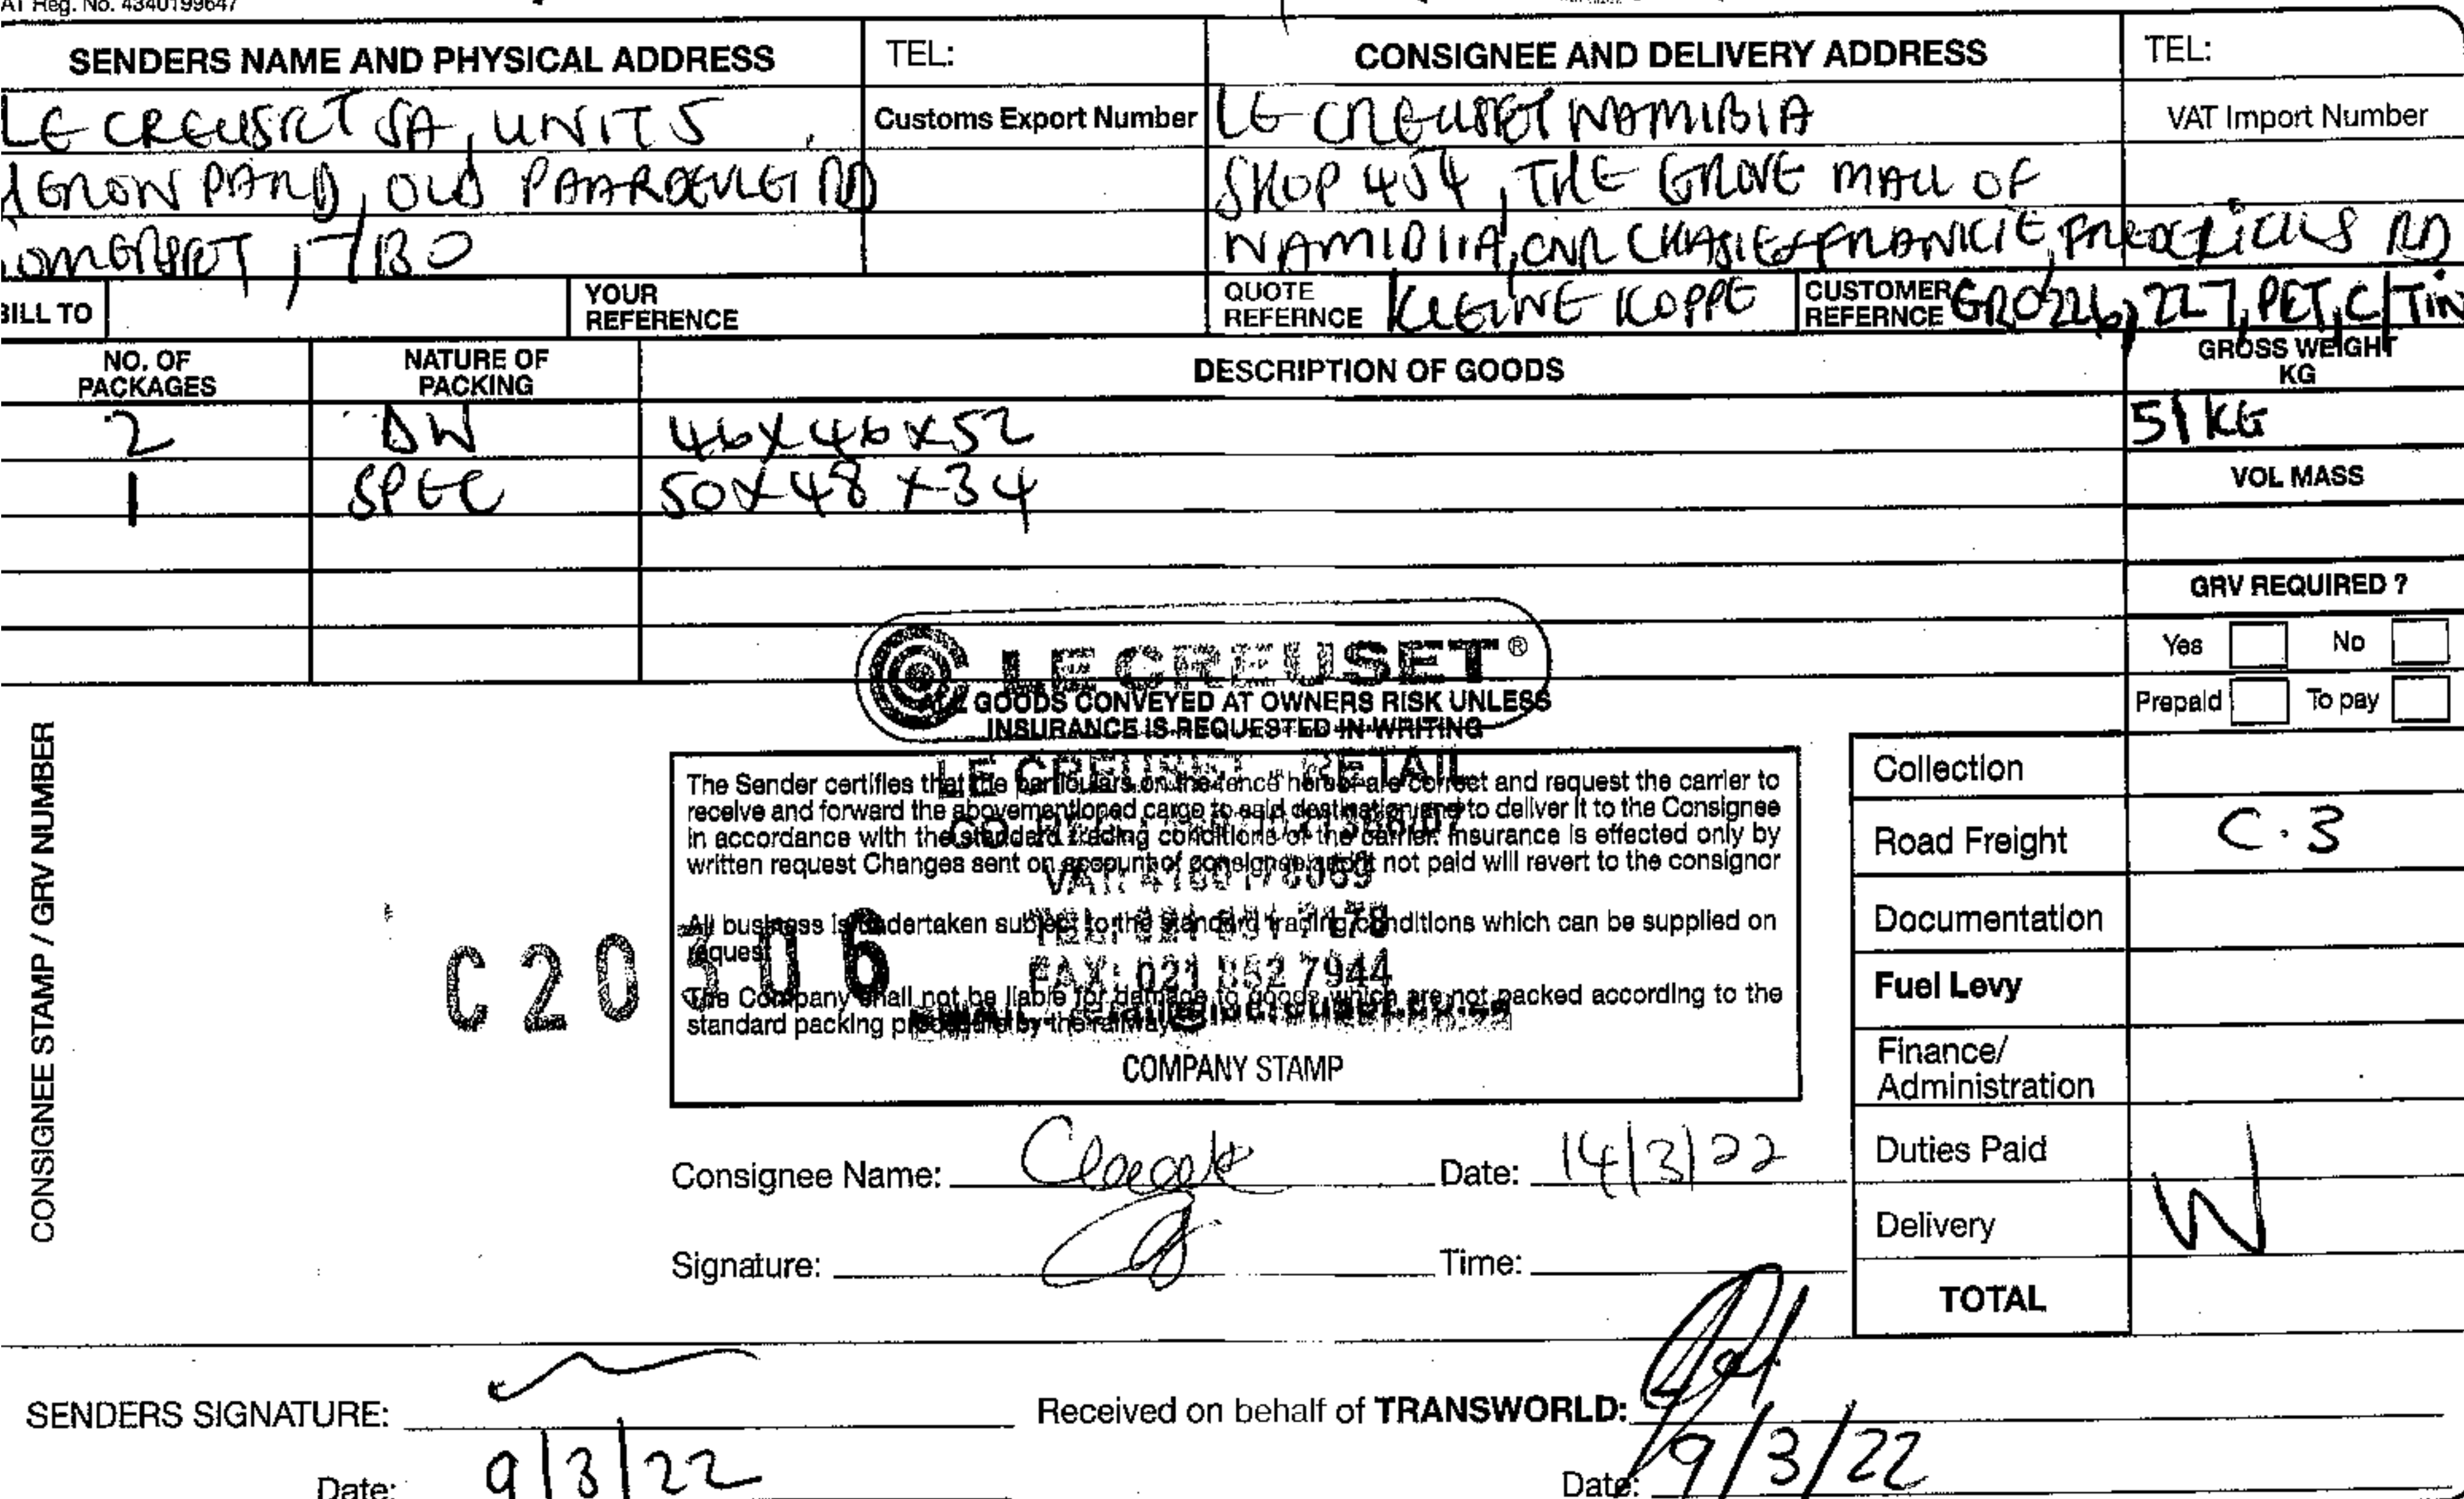 AT Reg. No. 4340199647
SENDERS NAME AND PHYSICAL ADDRESS
TEL:
CONSIGNEE AND DELIVERY ADDRESS
TEL:
LE CREUSET SA, UNIT 5
Customs Export Number
LE CREUSET NAMIBIA
VAT Import Number
OLD PAARDEVLEI RD
SHOP 454, THE GROVE MALL OF
7130
NAMIBIA, CNR CHASIE & FRANKIE, FREDERICKS RD
BILL TO
YOUR REFERENCE
QUOTE REFERNCE KLEINE KOPPE
CUSTOMER REFERNCE GRO226, 227, PET, C/TIN
NO. OF PACKAGES
NATURE OF PACKING
DESCRIPTION OF GOODS
GROSS WEIGHT KG
2 DW 46X46X52 51KG
1 SPEC 50X48X34
VOL MASS
GRV REQUIRED ?
Yes No
Prepaid To pay
LE CREUSET®
ALL GOODS CONVEYED AT OWNERS RISK UNLESS
INSURANCE IS REQUESTED IN WRITING
LE CREUSET RETAIL
The Sender certifies that the particulars on the fence hereof are correct and request the carrier to
receive and forward the abovementioned cargo to said destination and to deliver it to the Consignee
in accordance with the standard trading conditions of the carrier. Insurance is effected only by
written request Changes sent on account of consignee and not paid will revert to the consignor
All business is undertaken subject to the standard trading conditions which can be supplied on
request
FAX: 021 852 7944
The Company shall not be liable for damage to goods which are not packed according to the
standard packing procedure by the railway
COMPANY STAMP
CONSIGNEE STAMP / GRV NUMBER
C20306
Collection
Road Freight C.3
Documentation
Fuel Levy
Finance/
Administration
Duties Paid
Delivery W
TOTAL
Consignee Name: Date: 14/3/22
Signature: Time:
SENDERS SIGNATURE:
Received on behalf of TRANSWORLD:
Date: 9/3/22
Date: 9/3/22